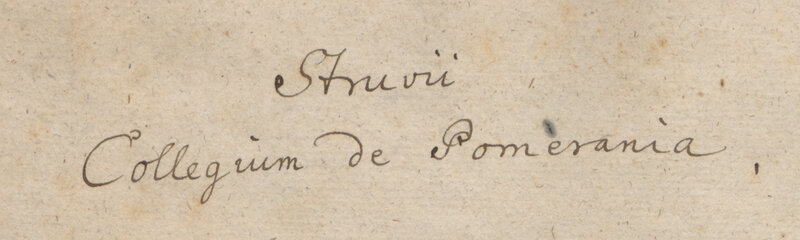 Struvii
Collegium de Pomerania.